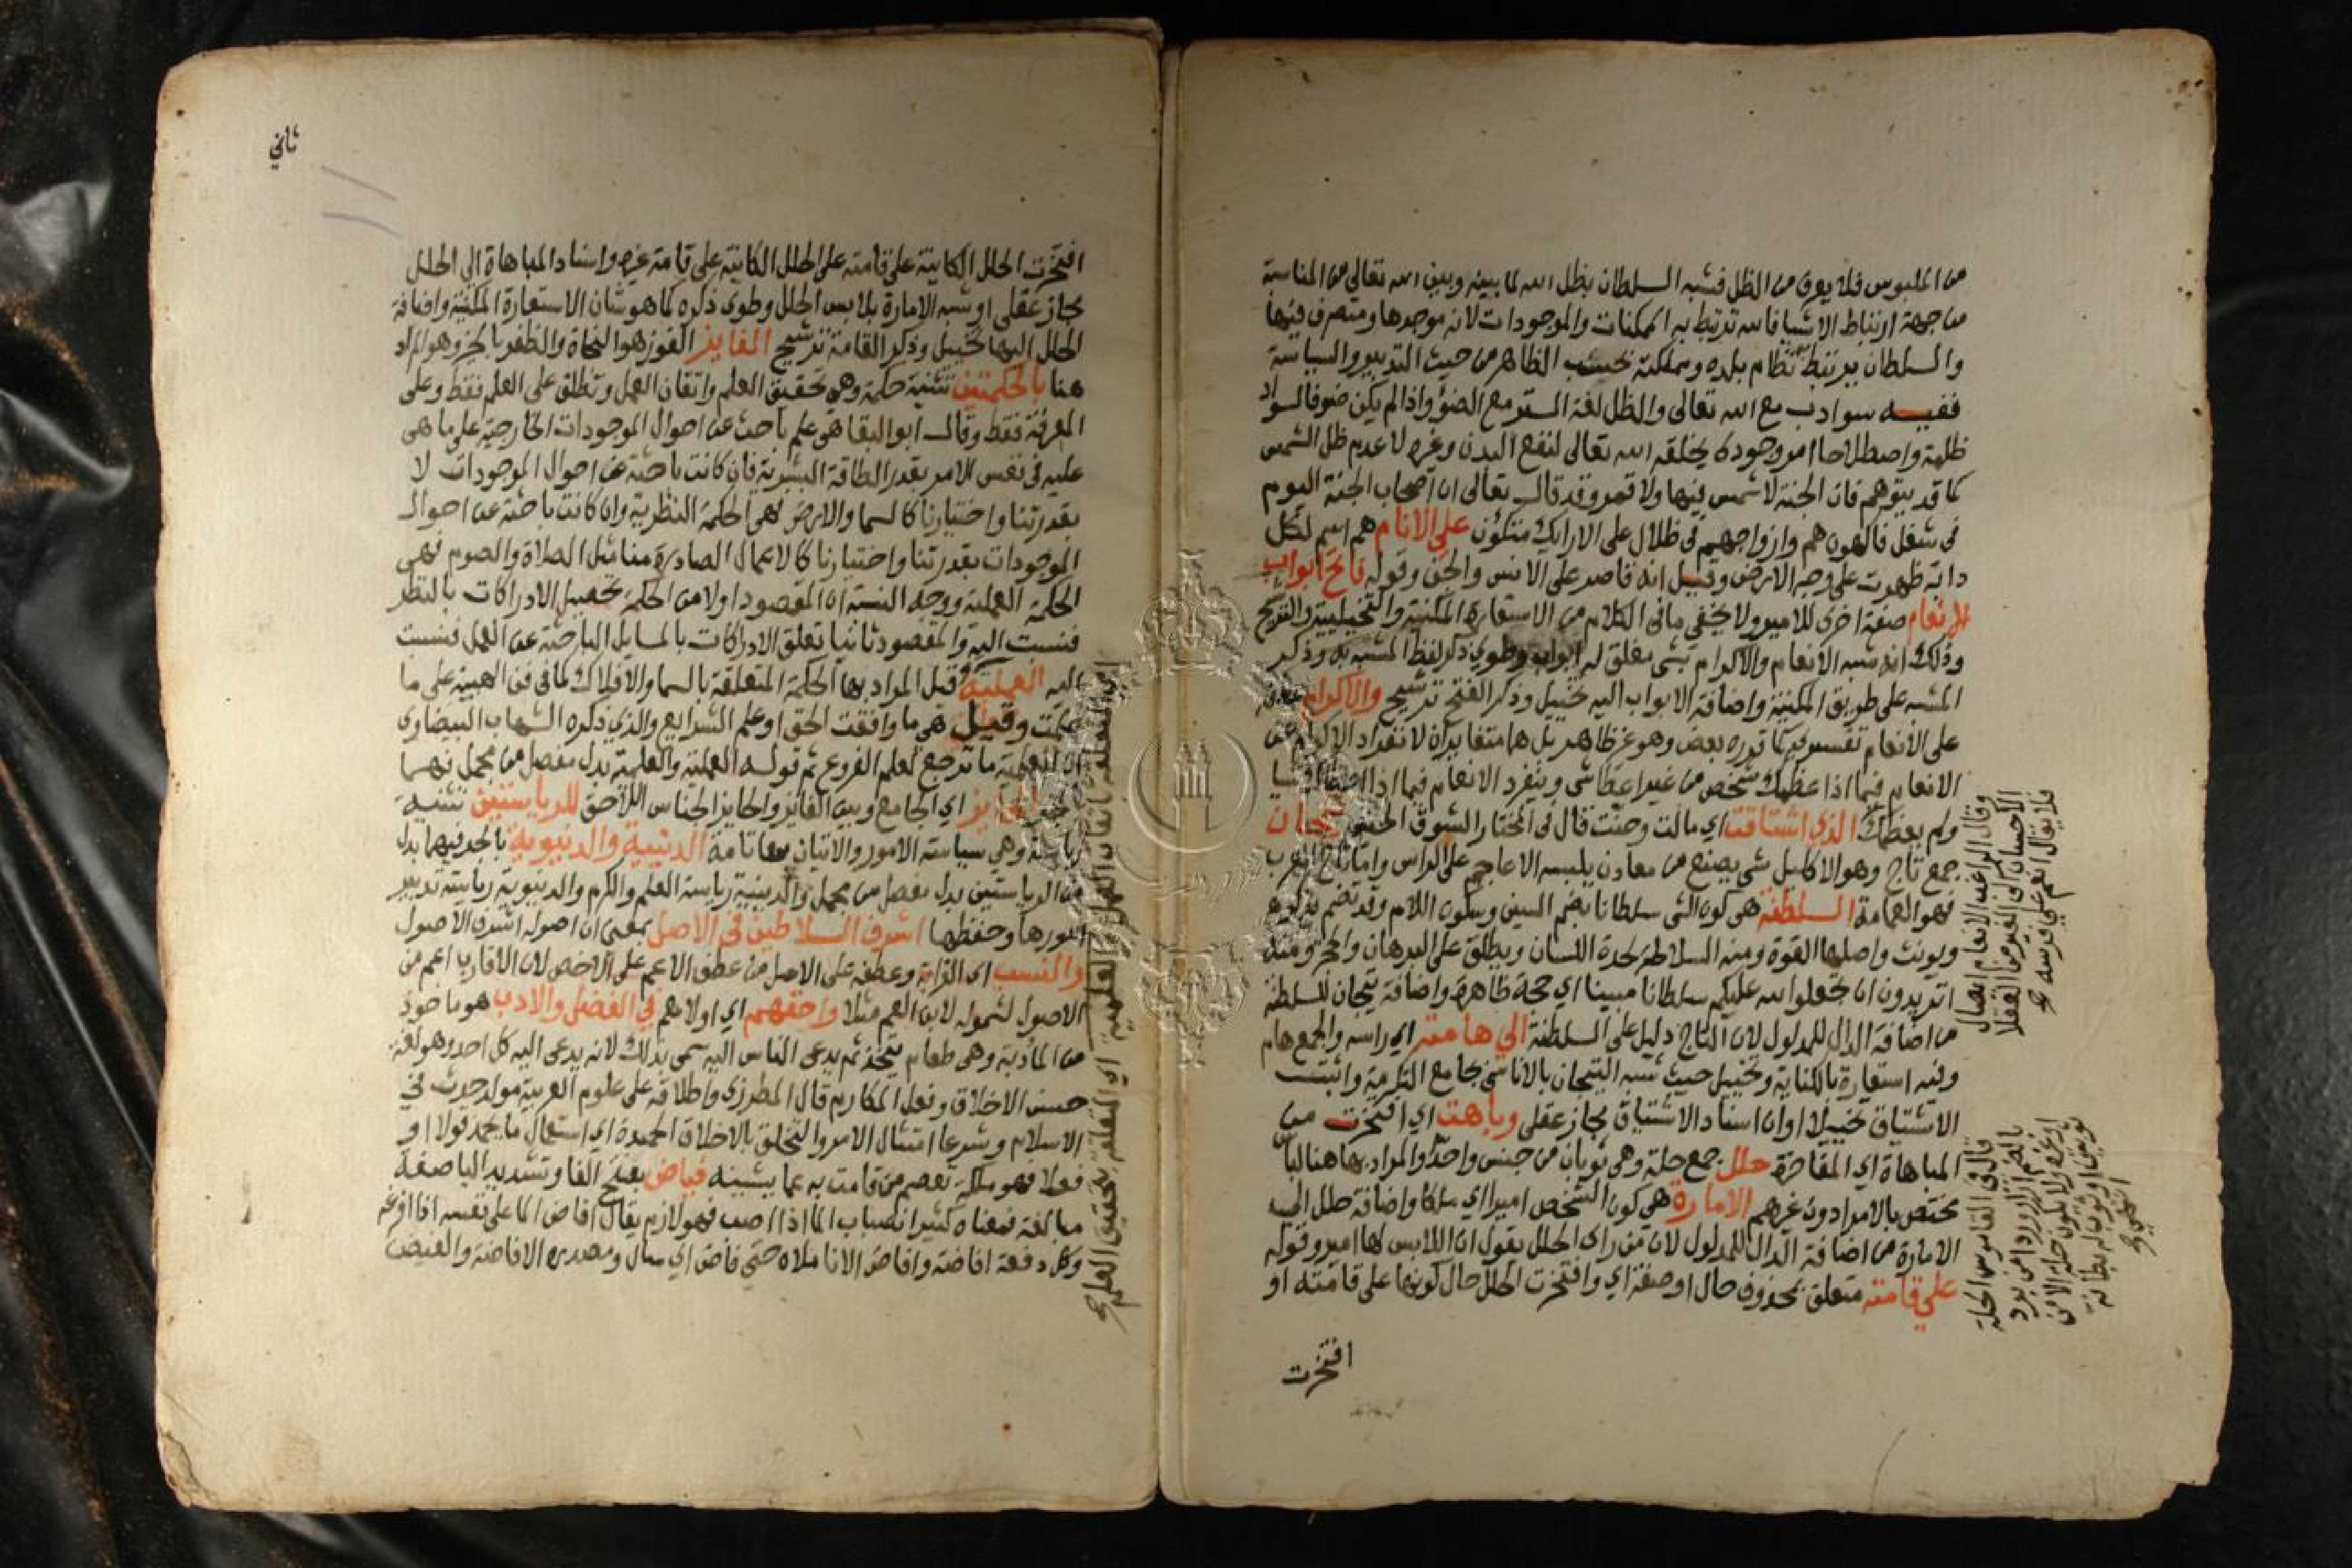 من الملبوس فلا يعرف من الظل فشبه السلطان بظل الله لما بينه وبين الله تعالى من المناسبة
من جهة ارتباط الاشيا فانه ترتبط به الممكنات والموجودات لانه موجدها ومتصرف فيها
والسلطان يرتبط نظام بلده ومملكته بحسب الظاهر من حيث التدبير والسياسة
ففيه سوادب مع الله تعالى والظل لغة الستر مع الضوء واذا لم يكن ضو فالسواد
ظلمة واصطلاحا امر وجودي يخلقه الله تعالى لنفع البدن وغيره لا عدم ظل الشمس
كما قد يتوهم فان الجنة لا شمس فيها ولا قمر وقد قال تعالى ان اصحاب الجنة اليوم
في شغل فاكهون هم وازواجهم في ظلال على الارائك متكؤن على الانام هم اسم لكل
دابة ظهرت على وجه الارض وقيل انه قاصر على الانس والجن وقوله فاتح ابواب
الانعام صفة اخرى للامير ولا يخفى ما في الكلام من الاستعارة المكنية والتخييلية والترشيح
وذلك انه شبه الانعام والاكرام بشى مغلق له ابواب وطوى ذكر لفظ المشبه به وذكر
المشبه على طريق المكنية واضافة الابواب اليه تخييل وذكر الفتح ترشيح والاكرام عطفه
على الانعام تفسيري كما قرره بعض وهو غير ظاهر بل هما متغايران لانفراد الاكرام عن
الانعام فيما اذا عظمك شخص من غير اعطا شى وينفرد الانعام فيما اذا اعطاك شيا
ولم يعظمك الذي اشتاقت اي مالت وحنت قال في المختار الشوق الحنين تيجان
جمع تاج وهو الاكليل شى يصنع من معادن يلبسه الاعاجم على الراس واما تاج العرب
فهو العمامة السلطنة هي كون الشى سلطانا بضم السين وسكون اللام وقد تضم يذكر
ويونث واصلها القوة ومنه السلاطة لحدة اللسان ويطلق على البرهان والحجر ومنه
اتريدون ان تجعلوا لله عليكم سلطانا مبينا اي حجة ظاهرة واضافة تيجان للسلطنة
من اضافة الدال للمدلول لان التاج دليل على السلطنة الى هامته اي راسه والجمع هام
وفيه استعارة بالكناية وتخييل حيث شبه التيجان بالاناسي بجامع التكرمة واثبت
الاشتياق تخييلا او ان اسناد الاشتياق مجاز عقلي وباهت اي افتخرت من
المباهاة اي المفاخرة حلل جمع حلة وهي ثوبان من جنس واحد والمراد بها هنا لباس
يختص بالامرا دون غيرهم الامارة هي كون الشخص اميرا اي ملكا واضافة حلل الى
الامارة من اضافة الدال للمدلول لان من راى الحلل يقول ان اللابس لها امير وقوله
على قامته متعلق بمحذوف حال او صفة اي وافتخرت الحلل حال كونها على قامته او
وقال الراغب الانعام ايصال
الاحسان الى الغير من العقلا
فلا يقال انعم على فرسه
قال في القاموس الحلة
بالضم ازار وردا من برد
او غيره ولا يكون حلة الا من
ثوبين او ثوب له بطانة
انتهى
افتخرت
ثاني
افتخرت الحلل الكاينة على قامته على الحلل الكاينة على قامة غيره واسناد المباهاة الى الحلل
مجاز عقلي او شبه الامارة بلابس الحلل وطوى ذكره كما هو شان الاستعارة المكنية واضافة
الحلل اليها تخييل وذكر القامة ترشيح الفايز الفوز هو النجاة والظفر بالخير وهو المراد
هنا بالحكمتين تثنية حكمة وهي تحقيق العلم واتقان العمل وتطلق على العلم فقط وعلى
المعرفة فقط وقال ابو البقا هي علم باحث عن احوال الموجودات الخارجية على ما هي
عليه في نفس الامر بقدر الطاقة البشرية فان كانت باحثة عن احوال الموجودات لا
بقدرتنا واختيارنا كالسما والارض فهي الحكمة النظرية وان كانت باحثة عن احوال
الموجودات بقدرتنا واختيارنا كالاعمال الصادرة منا مثل الصلاة والصوم فهي
الحكمة العملية ووجه النسبة ان المقصود اولا من الحكمة تحصيل الادراكات بالنظر
فنسبت اليه والمقصود ثانيا تعلق الادراكات بالمسايل الباحثة عن العمل فنسبت
اليه العملية قيل المراد بها الحكمة المتعلقة بالسما والافلاك كما في فن الهيية على ما
علمت وقيل هي ما وافقت الحق او علم الشرايع والذي ذكره الشهاب البيضاوي
ان العملية ما ترجع لعلم الفروع ثم قوله العملية والعلمية بدل مفصل من مجمل فهما
الحايز اي الجامع وبين الفايز والحايز الجناس اللاحق للرياستين تثنية
رياسة وهي سياسة الامور والاتيان بها تامة الدينية والدنيوية بالجر فيهما بدل
من الرياستين بدل مفصل من مجمل والدينية رياسة العلم والكرم والدنيوية رياسة تدبير
امورها وحفظها اشرف السلاطين في الاصل بمعنى ان اصوله اشرف الاصول
والنسب اي القرابة وعطفه على الاصل من عطف الاعم على الاخص لان الاقارب اعم من
الاصول لشموله لابن العم مثلا واحقهم اي اولاهم في الفضل والادب هو ماخوذ
من المأدبة وهي طعام يتخذ ثم يدعى الناس اليه سمى بذلك لانه يدعى اليه كل احد وهو لغة
حسن الاخلاق وفعل المكارم قال المطرزي واطلاقه على علوم العربية مولد حدث في
الاسلام وشرعا امتثال الامر والتخلق بالاخلاق الحميدة اي استعمال ما يحمد قولا او
فعلا فهو ملكة تعصم من قامت به عما يشينه فياض بفتح الفا وتشديد اليا صفة
مبالغة فمعناه كثير انصباب الما اذا وصف فهو لازم يقال افاض الما على نفسه اذا افرغه
وكل دفعة افاضة وافاض الانا ملاه حتى فاض اي سال ومصدره الافاضة والفيض